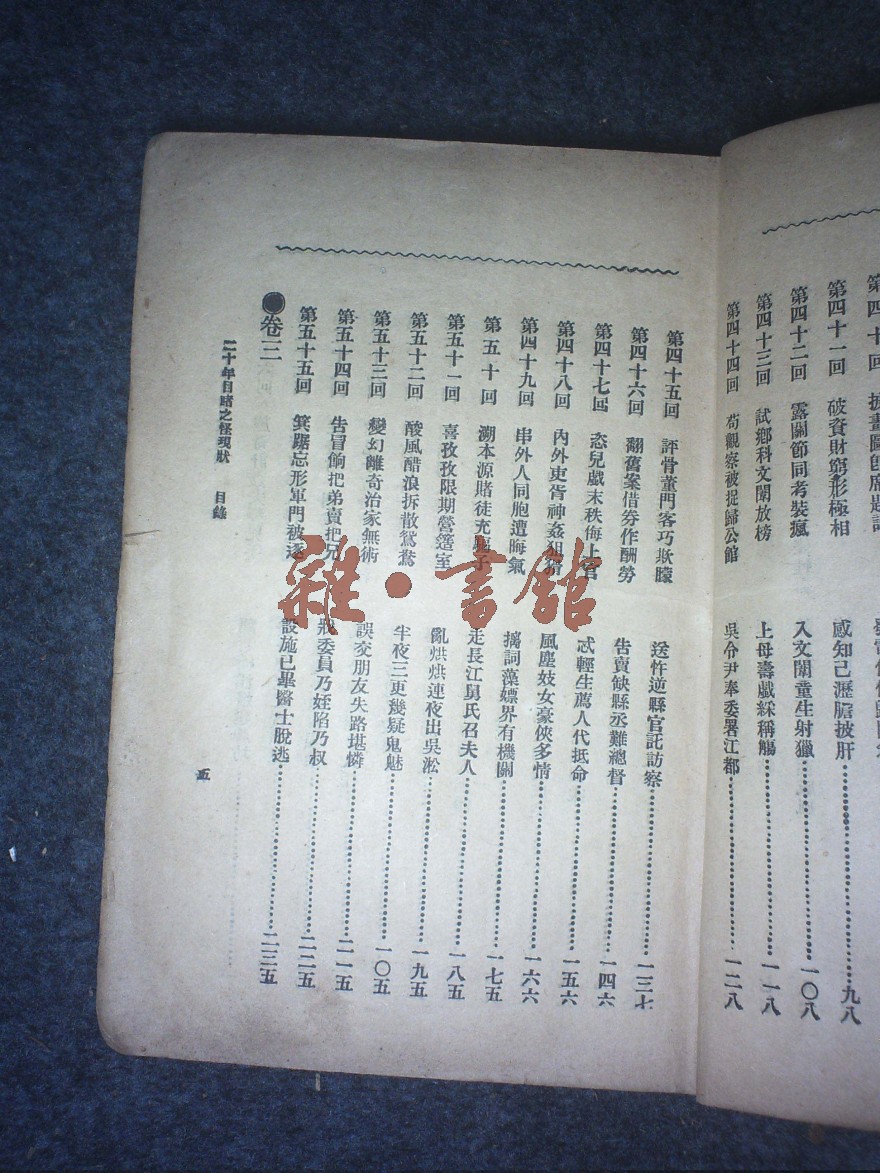 第四十一回 破資財窮形極相 感知己瀝膽披肝……九八
第四十二回 露關節同考裝瘋 入文闈童生射獵……一〇八
第四十三回 試鄉科文闈放榜 上母壽戲綵稱觴……一一八
第四十四回 苟觀察被捉歸公館 吳令尹奉委署江都……一二八
第四十五回 評骨董門客巧欺矇 送忤逆縣官託訪察……一三七
第四十六回 翻舊案借券作酬勞 告賣缺縣丞難總督……一四六
第四十七回 恣兒戲末秩侮上官 忒輕生薦人代抵命……一五六
第四十八回 內外吏胥神姦狙猾 風塵妓女豪俠多情……一六六
第四十九回 串外人同胞遭晦氣 擒詞藻嫖界有機關……一七五
第五十回 溯本源賭徒充騙子 走長江舅氏召夫人……一八五
第五十一回 喜孜孜限期營簉室 亂烘烘連夜出吳淞……一九五
第五十二回 酸風醋浪拆散鴛鴦 半夜三更幾疑鬼魅……一〇五
第五十三回 變幻離奇治家無術 誤交朋友失路堪憐……二一五
第五十四回 告冒餉把弟賣把兄 戕委員乃姪陷乃叔……二二五
第五十五回 箕踞忘形軍門被逐 設施已畢醫士脫逃……二三五
●卷三
二十年目睹之怪現狀 目錄
五
雜·書館